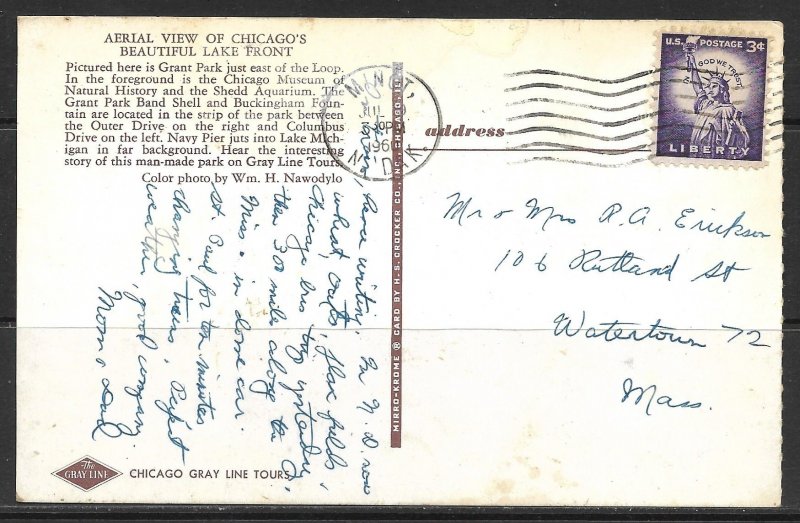 AERIAL VIEW OF CHICAGO'S
BEAUTIFUL LAKE FRONT
Pictured here is Grant Park just east of the Loop.
In the foreground is the Chicago Museum of
Natural History and the Shedd Aquarium. The
Grant Park Band Shell and Buckingham Foun-
tain are located in the strip of the park between
the Outer Drive on the right and Columbus
Drive on the left. Navy Pier juts into Lake Mich-
igan in far background. Hear the interesting
story of this man-made park on Gray Line Tours.
Color photo by Wm. H. Nawodylo
home writing. In N.D. now
wheat, oats, flax fields.
Chicago bus trip yesterday
then 300 miles along the
Miss. in dome car.
St Paul for ten minutes
changing trains. Perfect
weather, good company
Mom & Dad
The
GRAY LINE
CHICAGO GRAY LINE TOURS
MIRRO-KROME ® CARD BY H.S. CROCKER CO., INC., CHICAGO, IN.
MINOT,
JUL
PM
196
N. DAK.
address
U.S. POSTAGE 3¢
IN GOD WE TRUST
LIBERTY
Mr & Mrs R.A. Erickson
106 Rutland St
Watertown 72
Mass.